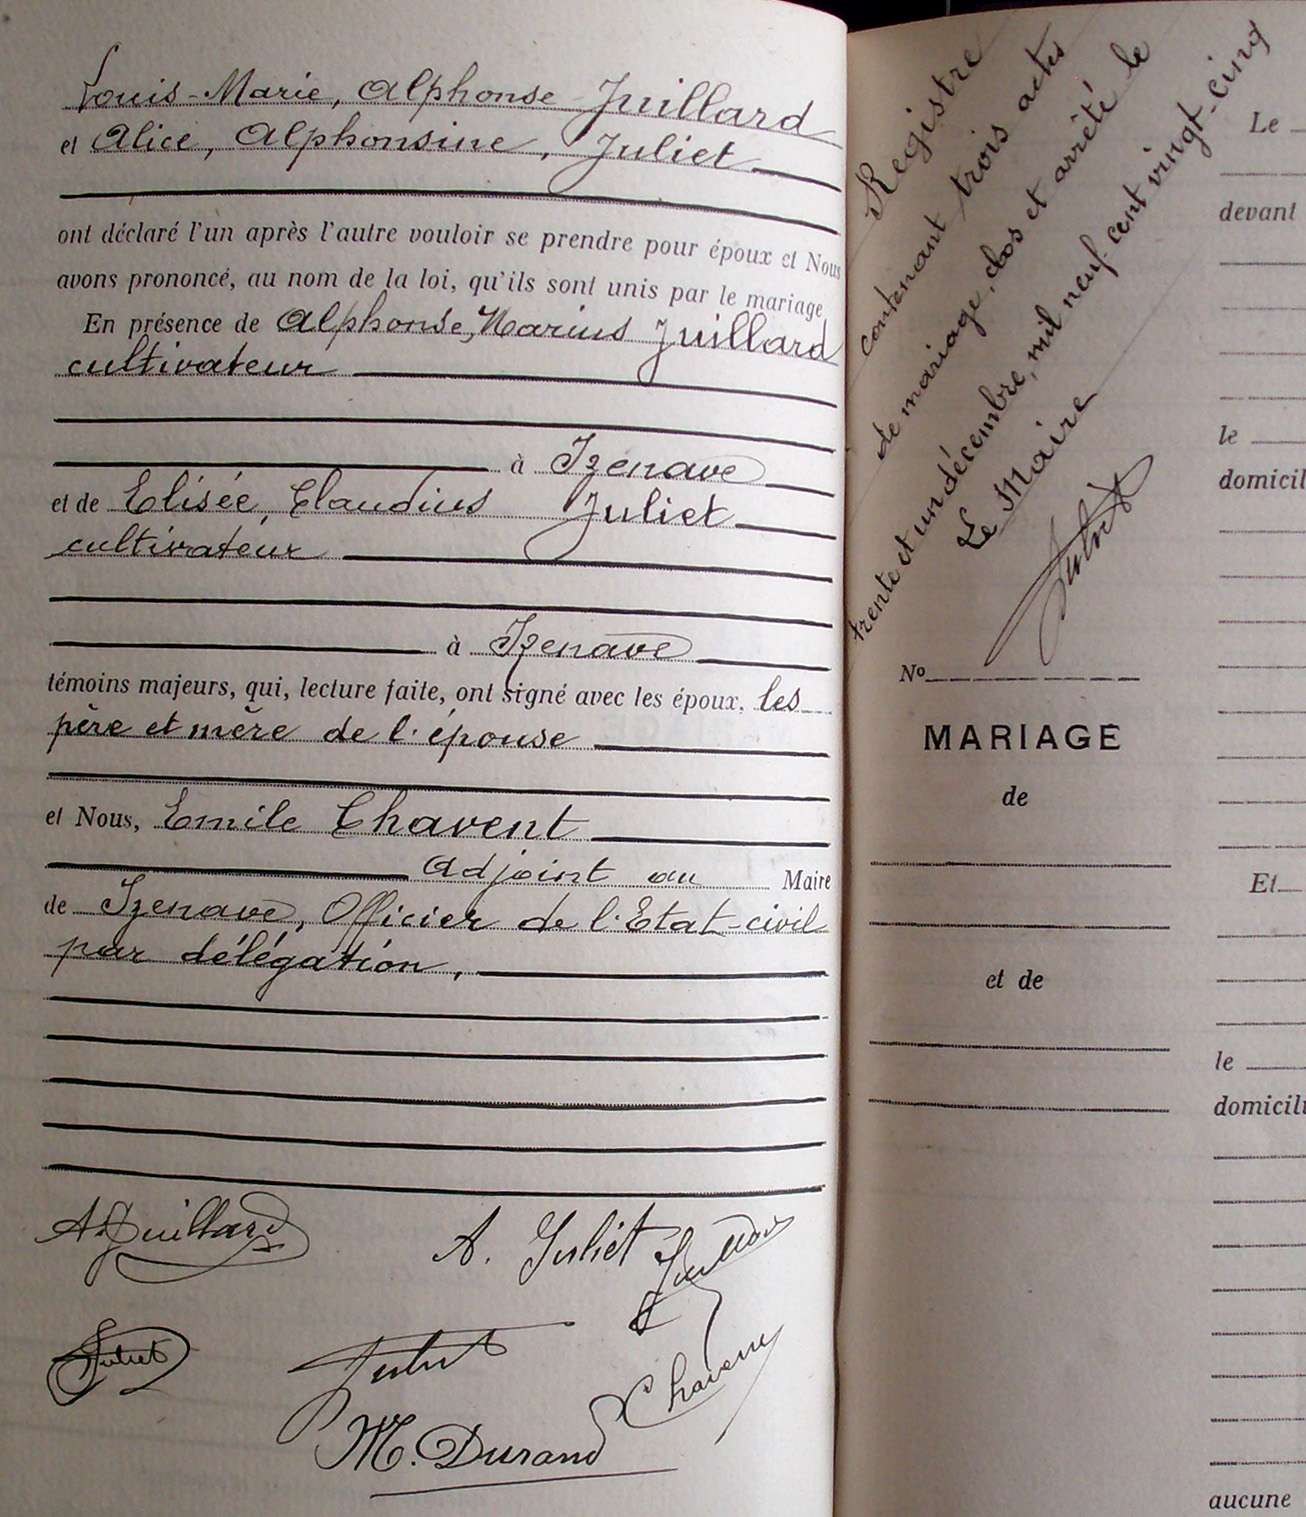 Louis-Marie, Alphonse Juillard
et Alice, Alphonsine, Juliet
ont déclaré l'un après l'autre vouloir se prendre pour époux et Nous
avons prononcé, au nom de la loi, qu'ils sont unis par le mariage
En présence de Alphonse, Marius Juillard
cultivateur
à Izenave
et de Elisée, Claudius Juliet
cultivateur
à Izenave
témoins majeurs, qui, lecture faite, ont signé avec les époux, les
père et mère de l'épouse
et Nous, Emile Chavent
adjoint au Maire
de Izenave, Officier de l'Etat-civil
par délégation,
A. Juillard
A. Juliet
Juillard
Juliet
Juliet
Chavent
M. Durand
Registre
contenant trois actes
de mariage, clos et arrêté le
trente et un décembre, mil neuf cent vingt-cinq
Le Maire
Juliet
No
MARIAGE
de
et de
Le
devant
le
domicil
Et
le
domicili
aucune